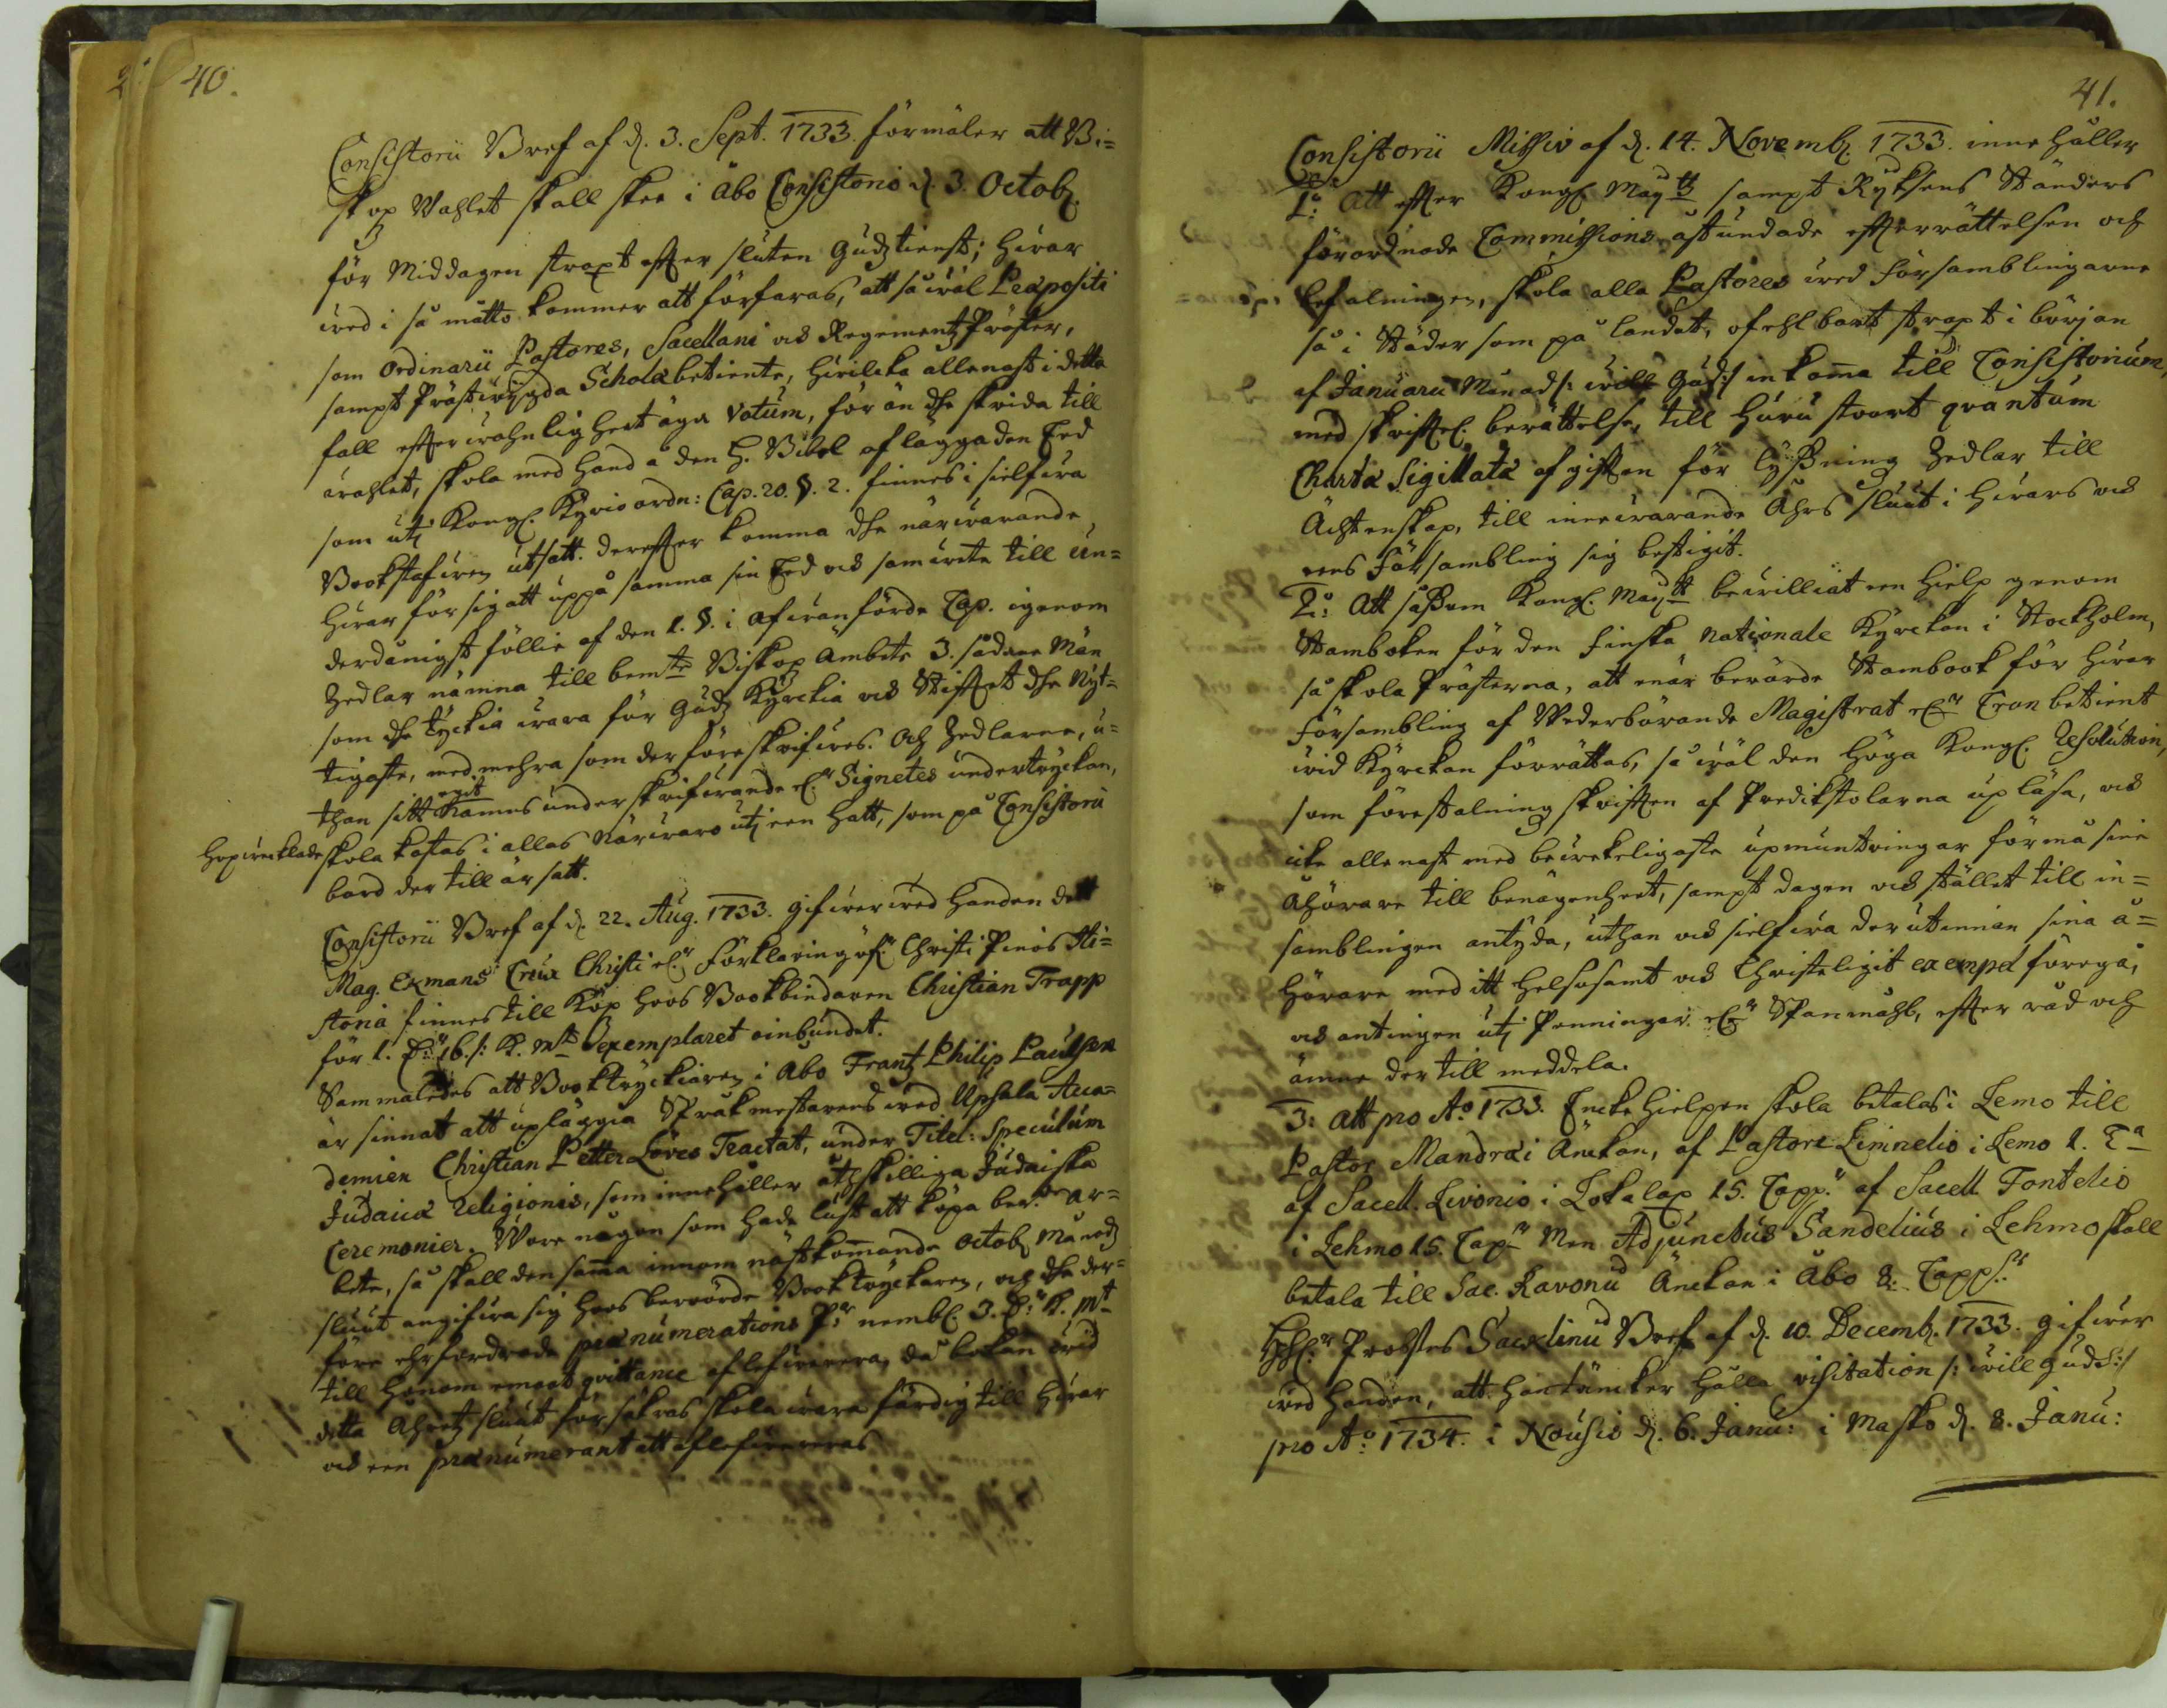 40.
Consistorii Bref af d. 3. Sept. 1733. förmäler att Bi=
skop Wahlet skall skee i Åbo Consistorio d. 3. Octob.
för Middagen straxt efter sluten Gudztienst; hwar
wed i så måtto kommer att förfaras, att så wäl Præpositi
som Ordinarii Pastores, Sacellani och Regementz Präster,
sampt Prästwijgda Scholæ betiente, hwilcka allenast i detta
fall efter wahnligheet äga Votum, för än dhe skrida till
wahlet, skola med hand å den H. Bibel aflägga den Eed
som utj Kongl. Kyrio ordn: Cap. 20. §. 2. finnes i sielfwa
Bookstafwen utsatt. Derefter komma dhe närwarande
hwar för sig att uppå samma sin Eed och samwete till un=
derdånigst föllie af den 1. §. i ofwanförde Cap. igenom
Zedlar nämna till bemte Biskops Ämbete 3. sådane Män
som dhe tyckia wara för Gudz Kyrckia och Stiftet dhe nyt=
tigaste, med mehra som der föreskrifwes. Och Zedlarne, u=
than sitt egit Namns underskrifwande el. Signetes undertryckan,
hopwecklade skola kastas i allas närwaro utj een hatt, som på Consistorii
bord der till är satt.
Consistorii Bref af d. 22. Aug. 1733. gifwer wed handen dett
Mag. Ekmans Crux Christi el. Förklaring öf. Christi Pinos Hi=
storia finnes till Köp hoos Bookbindaren Christian Trapp
för 1. D:r 16. s: K. mt exemplaret oinbundet.
Sammaledes att Booktryckiaren i Åbo Frantz Philip Paulsen
är sinnat att upläggia Språkmestarens wed Upsala Aca=
demien Christian Petter Löves Tractat, under Titel: Speculum
Judaicæ Religionis, som innehåller åthskilliga Judaiska
Ceremonier. Wore någon som hade lust att köpa bem:te ar=
bete, så skall den samma innom nästkommande Octob. Månadz
sluut angifwa sig hoos berörde Booktryckaren, och dhe der=
före ehrfordrade prænumerations P:r nembl. 3. D:r K. mt
till honom emoot qvittance aflefwerera, då bokan wid
detta Åhretz sluut försäkras skola wara färdig till hwar
och een prænumerant att aflefwereras.
41.
Consistorii Missiv af d. 14. Novemb. 1733. innehåller
1:o Att efter Kongl. May:tt sampt Ryksens Ständers
förordnade Commissions åstundade efterrättelsen och
befalningen, skola alla Pastores wed Församblingarne
så i Städer som på landet, ofehlbart straxt i början
af Januarii Månad /: will Gud :/ inkoma till Consistorium,
med skriftel. berättelse, till huru stoort qvantum
Charta Sigillata afgiften för lyssning Zedlar till
Ächtenskap, till innewarande Åhrs sluut i hwars och
eens Försambling sig bestigit.
2:o Att såsom Kongl. May:tt bewilliat een hielp genom
Stamboken för den Finska Nationale Kyrckan i Stockholm,
så skola Prästerna, att enär berörde Stambook för hwar
Försambling af Wederbörande Magistrat el. Cron betient
wid Kyrckan förrättas, så wäl den Höga Kongl. Resolution,
som förestalning skriften af Predikstolarna upläsa, och
icke allenast med bewekeligaste upmuntringar förmå sine
Åhörare till benägenheet, sampt dagen och stället till in=
samblingen antyda, uthan och sielfwa der utinnan sina å=
hörare med ett helsosamt och Christeligit exempel föregå,
och antingen utj Penningar el. Spanmåhl, efter råd och
ämne der till meddela.
3: att pro A:o 1733. Enckehielpen skola betalas i Lemo till
Pastor Mandræi Änckan, af Pastore Limnelio i Lemo 1. T:a
af Sacell. Livonio i Lokalax 15. Capp:r af Sacell. Fontelio
i Lehmo 15. Cap:r Men Adjunctus Sandelius i Lehmo skall
betala till Sac. Ravonii Änckan i Åbo 8. Capp:r
H. Probstes Sacklinii Bref af d. 10. Decemb. 1733. gifwer
wed handen, att han täncker hålla visitation /: will Gud :/
pro A:o 1734. i Nousis d. 6. Janu: i Masko d. 8. Janu: